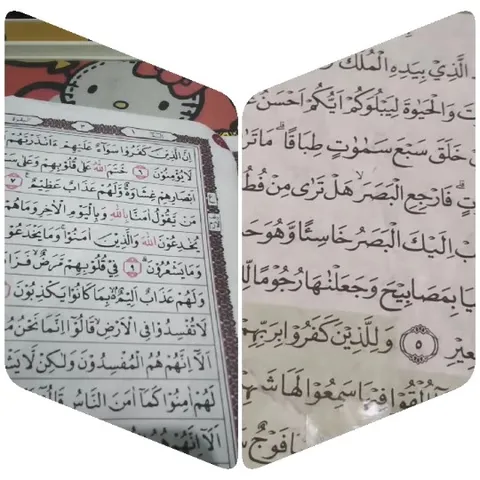 اِنَّ الَّذِيْنَ كَفَرُوْا سَوَآءٌ عَلَيْهِمْ ءَاَنْذَرْتَهُمْ
لَا يُؤْمِنُوْنَ ٦ خَتَمَ اللّٰهُ عَلٰى قُلُوْبِهِمْ وَعَلٰى
اَبْصَارِهِمْ غِشَاوَةٌ وَّلَهُمْ عَذَابٌ عَظِيْمٌ ٧
مَنْ يَّقُوْلُ اٰمَنَّا بِاللّٰهِ وَبِالْيَوْمِ الْاٰخِرِ وَمَا هُمْ
يُخٰدِعُوْنَ اللّٰهَ وَالَّذِيْنَ اٰمَنُوْا وَمَا يَخْدَعُوْنَ
وَمَا يَشْعُرُوْنَ ٩ فِيْ قُلُوْبِهِمْ مَّرَضٌ
وَلَهُمْ عَذَابٌ اَلِيْمٌ بِمَا كَانُوْا يَكْذِبُوْنَ
لَا تُفْسِدُوْا فِى الْاَرْضِ قَالُوْٓا اِنَّمَا نَحْنُ
اَلَآ اِنَّهُمْ هُمُ الْمُفْسِدُوْنَ وَلٰكِنْ لَّا
لَهُمْ اٰمِنُوْا كَمَآ اٰمَنَ النَّاسُ
اَلَآ اِنَّهُمْ
الَّذِيْ بِيَدِهِ الْمُلْكُ
وَالْحَيٰوةَ لِيَبْلُوَكُمْ اَيُّكُمْ اَحْسَنُ
خَلَقَ سَبْعَ سَمٰوٰتٍ طِبَاقًا مَا
فَارْجِعِ الْبَصَرَ هَلْ تَرٰى مِنْ
اِلَيْكَ الْبَصَرُ خَاسِئًا وَّهُوَ
بِمَصَابِيْحَ وَجَعَلْنٰهَا رُجُوْمًا
٥ وَلِلَّذِيْنَ كَفَرُوْا بِرَبِّهِمْ
اُلْقُوْا فِيْهَا سَمِعُوْا لَهَا
فَوْجٌ